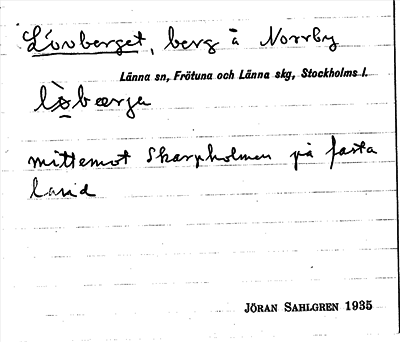 Lövberget, berg å Norrby
Länna sn, Frötuna och Länna skg, Stockholms l.
lǜbærja
mittemot Skarpholmen på fasta
land
JÖRAN SAHLGREN 1935